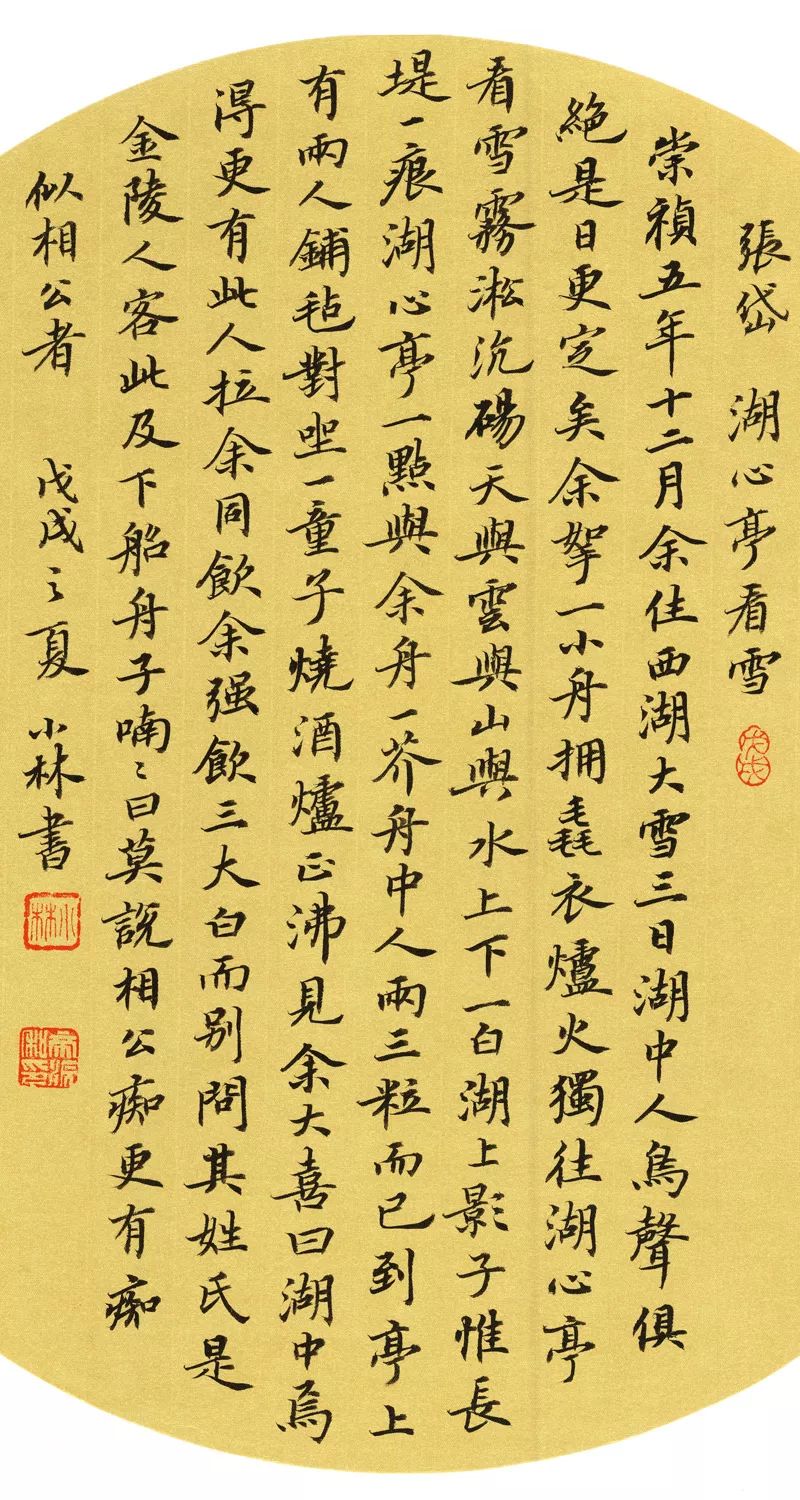 張岱 湖心亭看雪
戊戌
崇禎五年十二月余住西湖大雪三日湖中人鳥聲俱
絶是日更定矣余拏一小舟拥毳衣爐火獨往湖心亭
看雪霧淞沆碭天與雲與山與水上下一白湖上影子惟長
堤一痕湖心亭一點與余舟一芥舟中人兩三粒而已到亭上
有兩人鋪毡對坐一童子燒酒爐正沸見余大喜曰湖中焉
得更有此人拉余同飲余强飲三大白而别問其姓氏是
金陵人客此及下船舟子喃〻曰莫説相公痴更有痴
似相公者 戊戌之夏 小林書
小林